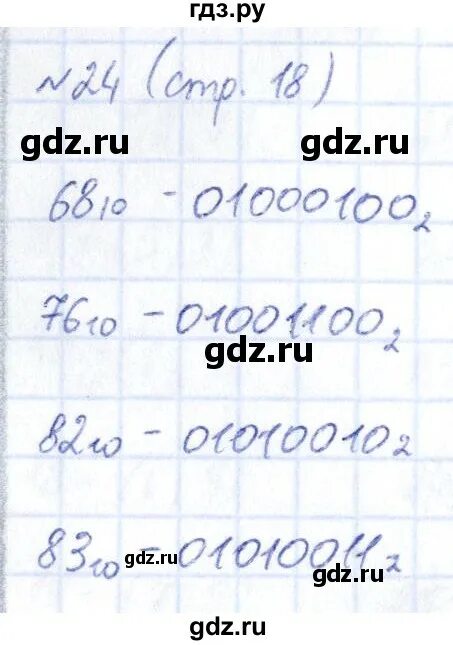 гдз.ру
№24 (стр. 18)
gdz.ru gdz.ru
68₁₀ - 01000100₂
76₁₀ - 01001100₂
gdz.ru
82₁₀ - 01010010₂
83₁₀ - 01010011₂
gdz.ru gdz.ru
gdz.ru